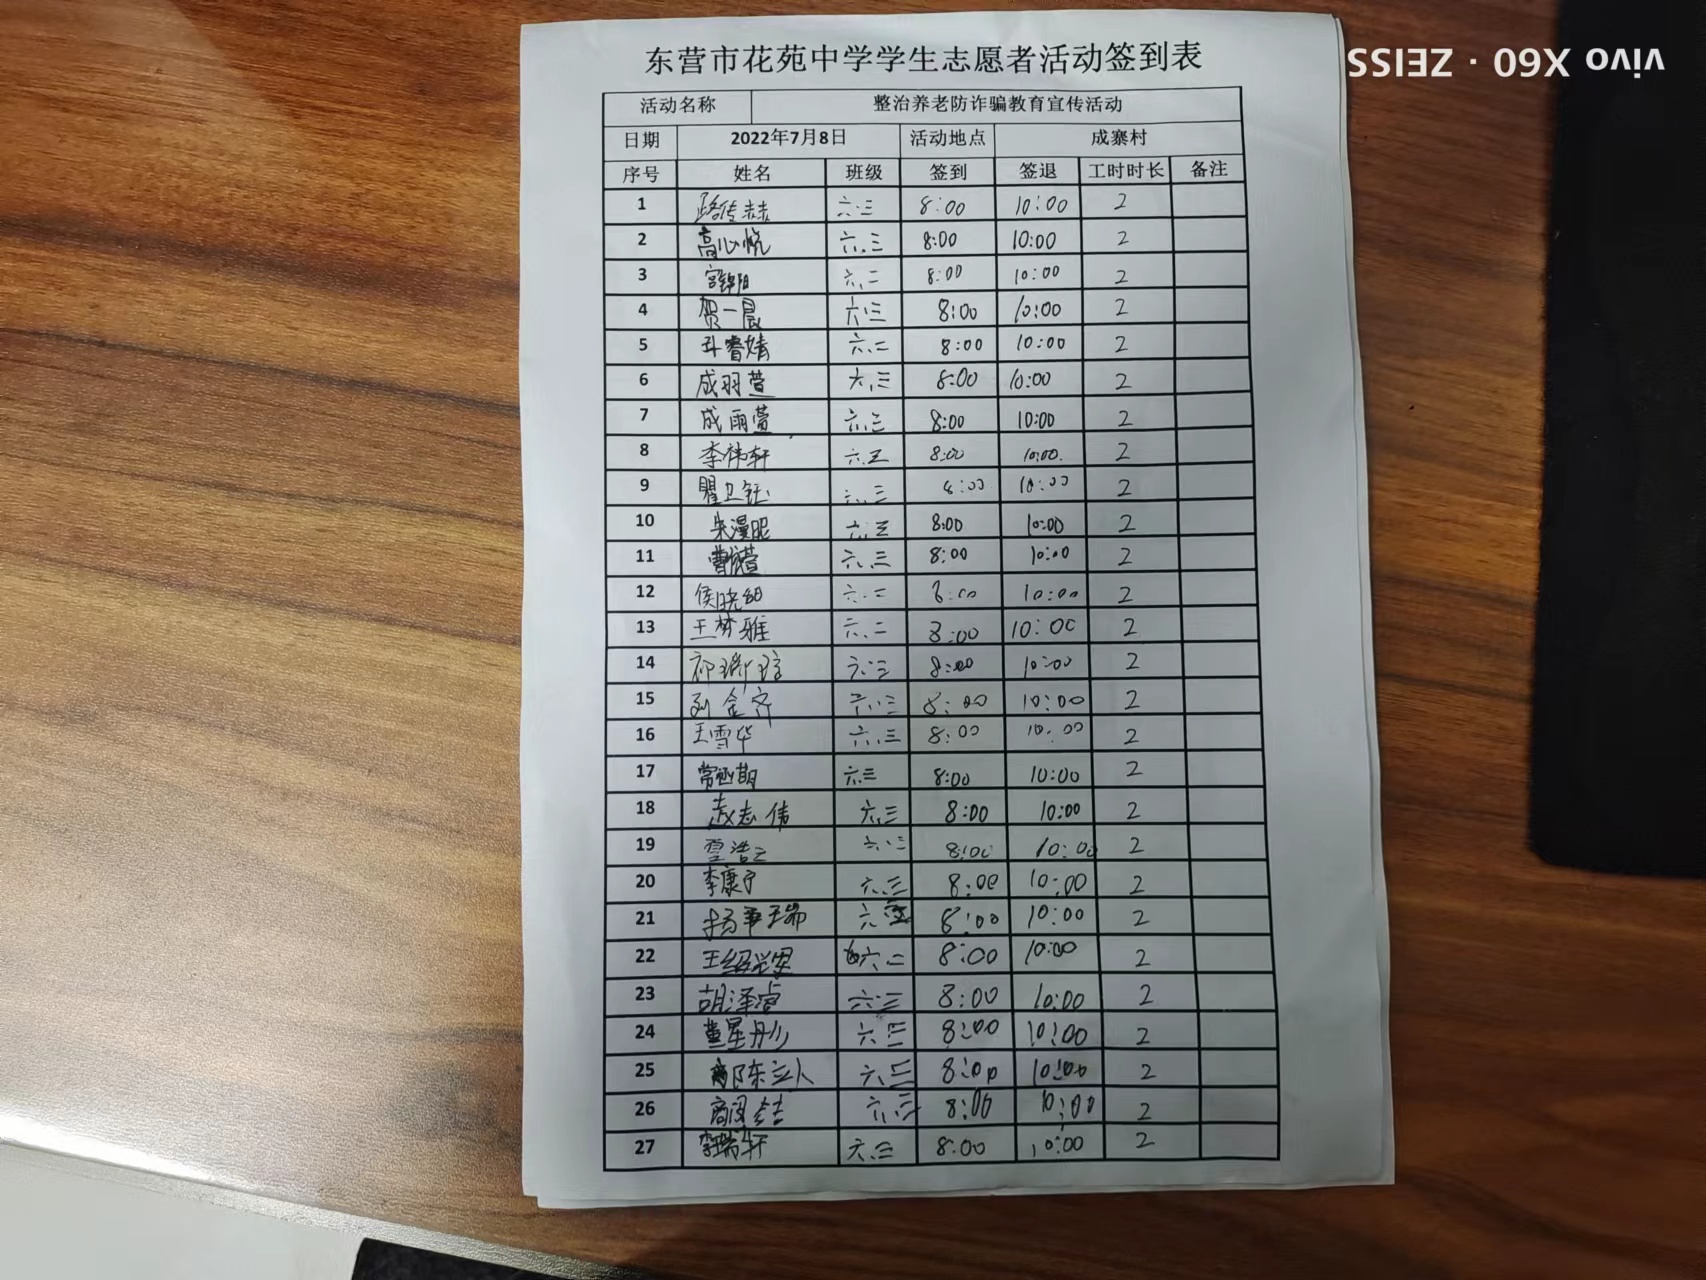 东营市花苑中学学生志愿者活动签到表
vivo X60 · ZEISS
活动名称 整治养老防诈骗教育宣传活动
日期 2022年7月8日 活动地点 成寨村
序号 姓名 班级 签到 签退 工时时长 备注
1 路传赫 六.三 8:00 10:00 2
2 高心悦 六.三 8:00 10:00 2
3 宫锦阳 六.二 8:00 10:00 2
4 贺一晨 六.三 8:00 10:00 2
5 睿婧 六.二 8:00 10:00 2
6 成羽萱 六.三 8:00 10:00 2
7 成雨萱 六.三 8:00 10:00 2
8 李伟轩 六.五 8:00 10:00 2
9 瞿卫钰 六.三 8:00 10:00 2
10 朱漫昵 8:00 10:00 2
11 曹 萱 六.三 8:00 10:00 2
12 侯晓 六.二 8:00 10:00 2
13 王梦雅 六.二 8:00 10:00 2
14 祁 六.三 8:00 10:00 2
15 刘金齐 六.三 8:00 10:00 2
16 王雪华 六.三 8:00 10:00 2
17 常 期 六.三 8:00 10:00 2
18 志伟 六.三 8:00 10:00 2
19 浩云 六.三 8:00 10:00 2
20 李康宁 六.三 8:00 10:00 2
21 杨 瑞 8:00 10:00 2
22 王绍 六.二 8:00 10:00 2
23 胡泽睿 六.三 8:00 10:00 2
24 董星 六.三 8:00 10:00 2
25 陈立人 六.三 8:00 10:00 2
26 商 六.三 8:00 10:00 2
27 李瑞轩 六.三 8:00 10:00 2